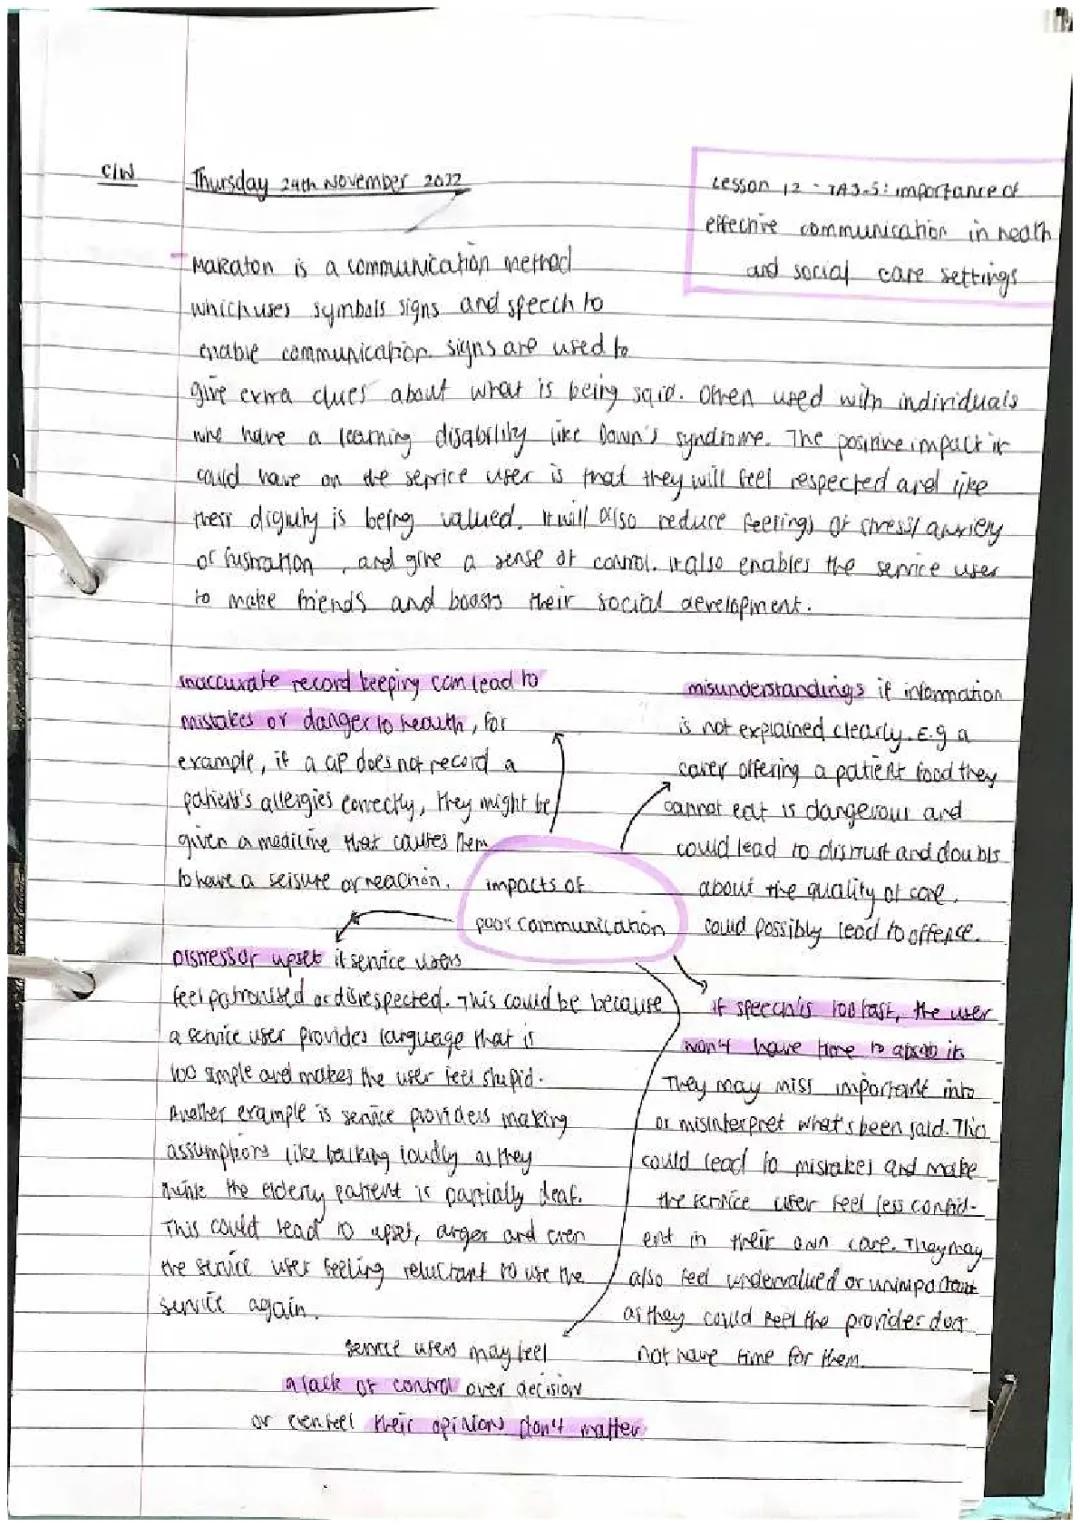 C/W
Thursday 24th November 2022
Lesson 12 - TA3.5: importance of
effective communication in health
and social care settings
Makaton is a communication method
which uses symbols signs and speech to
enable communication. signs are used to
give extra clues about what is being said. Often used with individuals
who have a learning disability like Down's syndrome. The positive impact it
could have on the service user is that they will feel respected and like
their dignity is being valued. It will also reduce feelings of stress/anxiety
or fustration, and give a sense of control. it also enables the service user
to make friends and boosts their social development.
inaccurate record keeping can lead to
mistakes or danger to health, for
example, if a GP does not record a
patient's allergies correctly, they might be
given a medicine that causes them
to have a seisure or reaction.
misunderstandings if information
is not explained clearly. E.g a
carer offering a patient food they
cannot eat is dangerous and
could lead to distrust and doubts
about the quality of care.
could possibly lead to offence.
impacts of
poor communication
Distress or upset if service users
feel patronised or disrespected. This could be because
a service user provides language that is
too simple and makes the user feel stupid.
Another example is service providers making
assumptions like talking loudly as they
think the elderly patient is partially deaf.
This could lead to upset, anger and even
the service user feeling reluctant to use the
service again.
if speech is too fast, the user
won't have time to absorb it.
They may miss important info
or misinterpret what's been said. This
could lead to mistakes and make
the service user feel less confid-
ent in their own care. They may
also feel undervalued or unimportant
as they could feel the provider does
not have time for them.
service users may feel
a lack of control over decision
or even feel their opinions don't matter